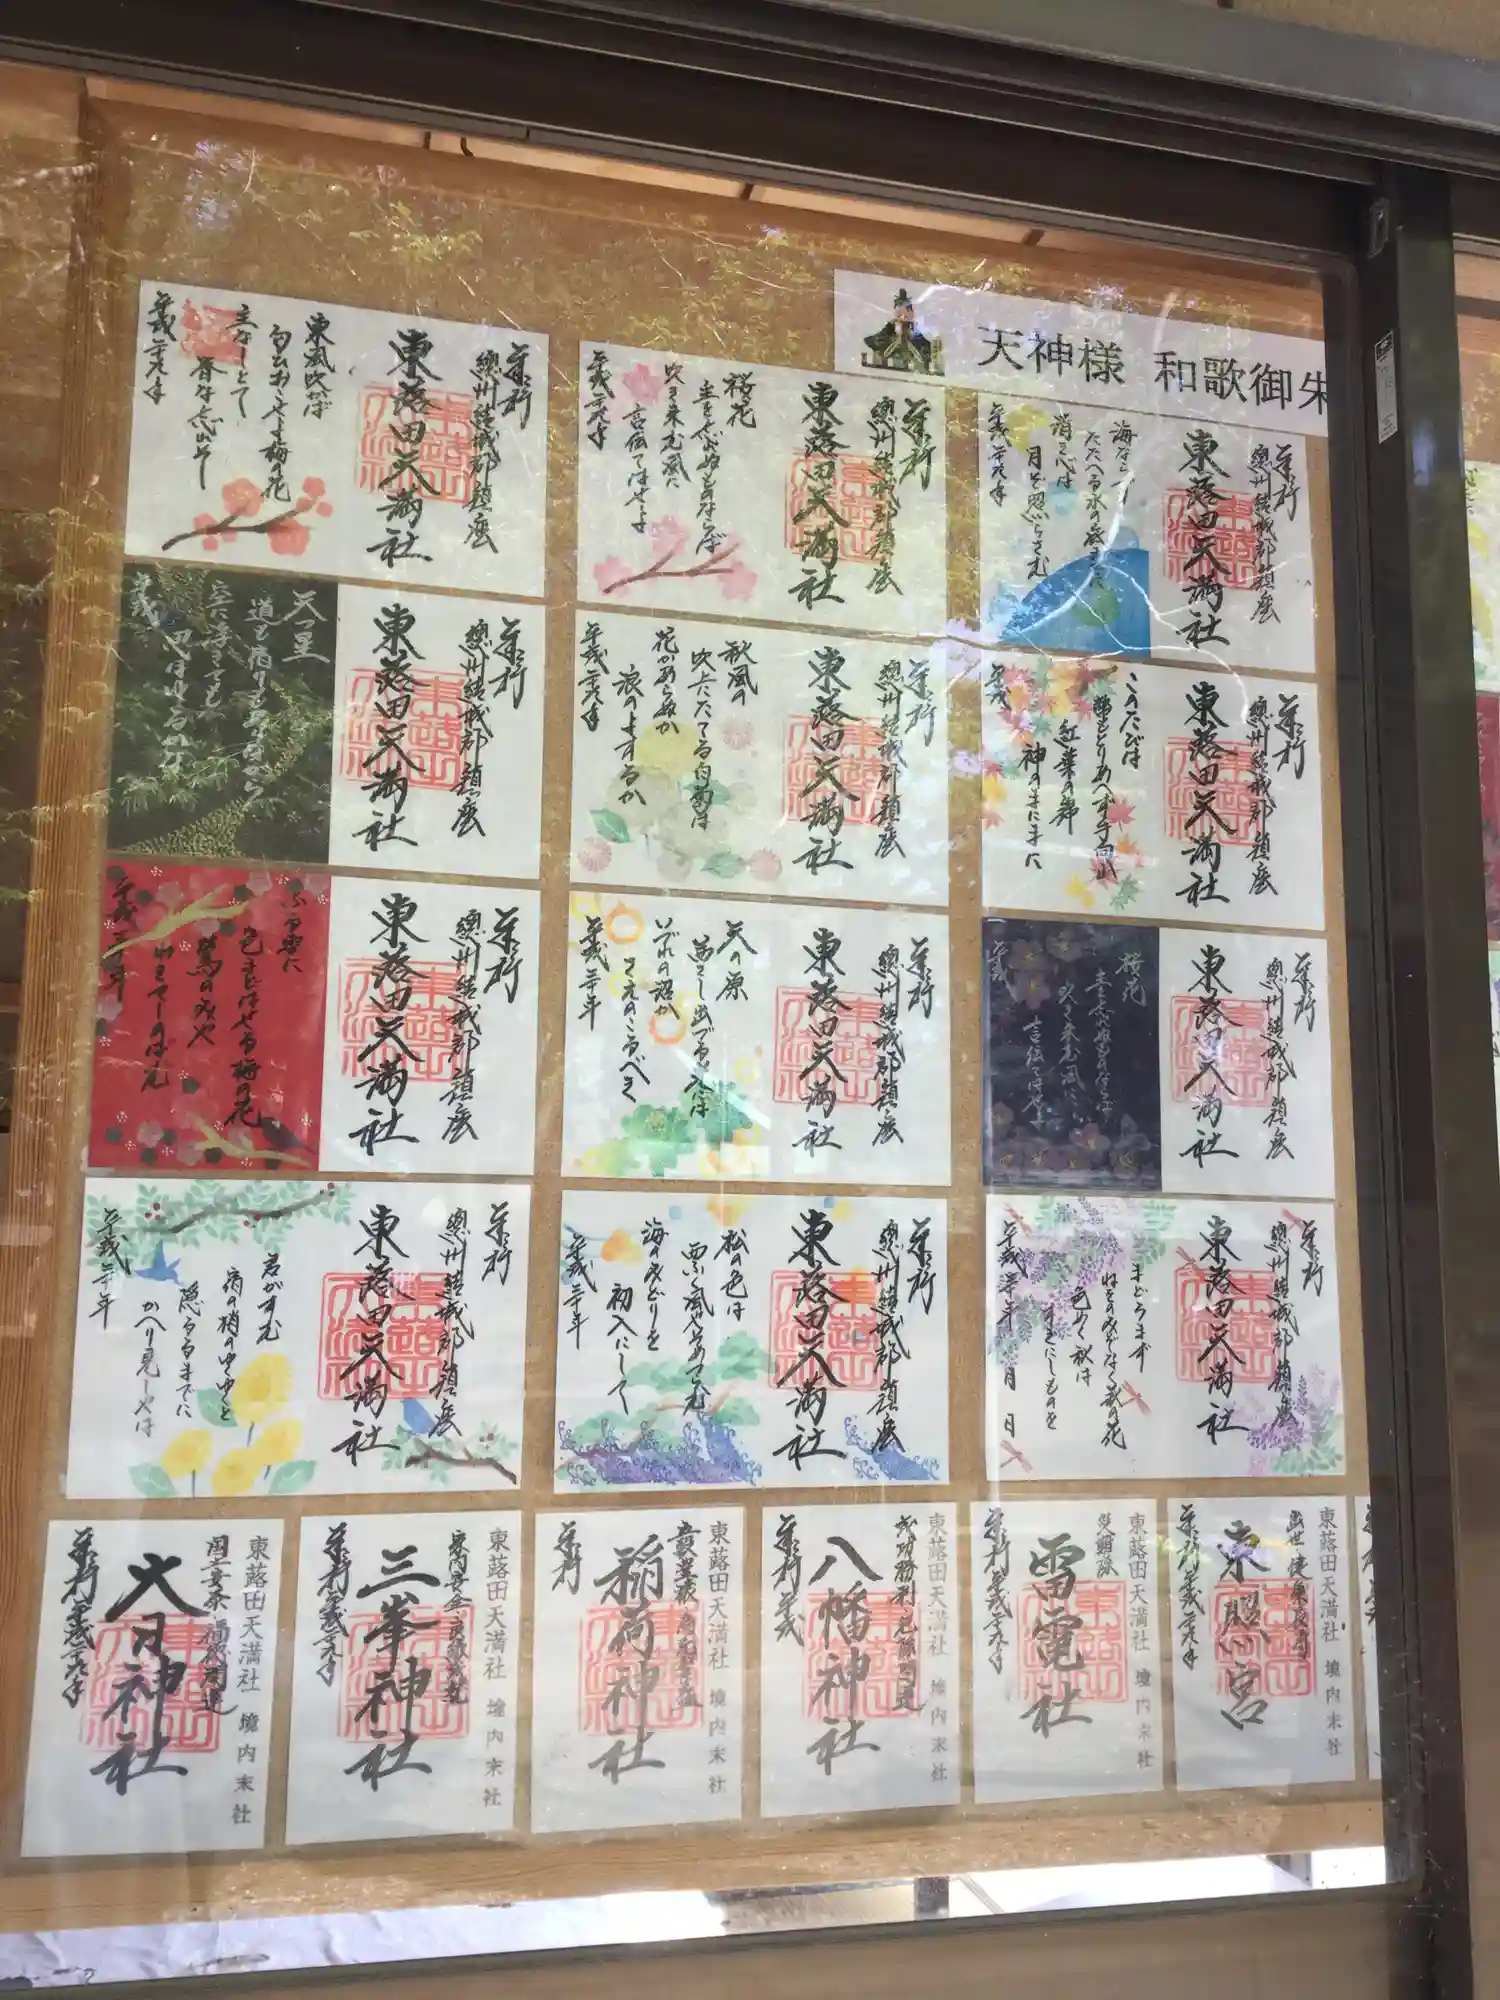 天神様 和歌御朱
奉拝
總州結城郡鎮座
東蕗田天満社
東風吹かば
匂ひおこせよ梅の花
主なしとて
春な忘れそ
平成二十九年
奉拝
總州結城郡鎮座
東蕗田天満社
桜花
主を忘れぬものならば
吹き来む風に
言伝てはせよ
平成二十九年
奉拝
總州結城郡鎮座
東蕗田天満社
海ならず
たたへる水の底までに
清き心は
月ぞ照らさむ
平成二十九年
奉拝
總州結城郡鎮座
東蕗田天満社
天つ星
道も宿りも
空に浮きても
思ほゆるかな
平成
奉拝
總州結城郡鎮座
東蕗田天満社
秋風の
吹上にたてる白菊は
花かあらぬか
浪のよするか
平成二十九年
奉拝
總州結城郡鎮座
東蕗田天満社
このたびは
幣もとりあへず手向山
紅葉の錦
神のまにまに
平成
奉拝
總州結城郡鎮座
東蕗田天満社
ふる雪に
色まどはせる梅の花
鶯のみや
わきてしのばん
平成三十年
奉拝
總州結城郡鎮座
東蕗田天満社
天の原
あかねさし出づる光には
いづれの沼か
さえのこるべき
平成三十年
奉拝
總州結城郡鎮座
東蕗田天満社
桜花
主を忘れぬものならば
吹き来む風に
言伝てはせよ
平成
奉拝
總州結城郡鎮座
東蕗田天満社
君がすむ
宿の梢のゆくゆくと
隠るるまでに
かへり見しやは
平成三十年
奉拝
總州結城郡鎮座
東蕗田天満社
松の色は
西ふく風やそめつらむ
海のみどりを
初入にして
平成三十年
奉拝
總州結城郡鎮座
東蕗田天満社
まどろまず
ねをのみぞなく萩の花
色めく秋は
すぎにしものを
平成三十年 月 日
東蕗田天満社 境内末社
大日神社
奉拝 平成二十九年
東蕗田天満社 境内末社
三峯神社
奉拝 平成二十九年
東蕗田天満社 境内末社
稲荷神社
奉拝
東蕗田天満社 境内末社
八幡神社
奉拝 平成
東蕗田天満社 境内末社
災難除
雷電社
奉拝 平成二十九年
東蕗田天満社 境内末社
東照宮
奉拝 平成二十九年